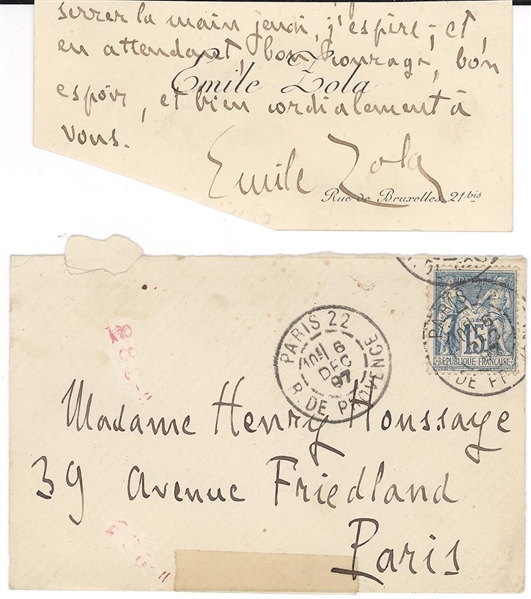 serrer la main jeudi, j'espère, et,
en attendant, bon courage, bon
Emile Zola
espoir, et bien cordialement à
vous.
Emile Zola
Rue de Bruxelles, 21 bis
PARIS 22
6
DEC
97
R. DE PROVENCE
PARIS
15
REPUBLIQUE FRANÇAISE
DE PR
Madame Henry Houssaye
39 Avenue Friedland
Paris